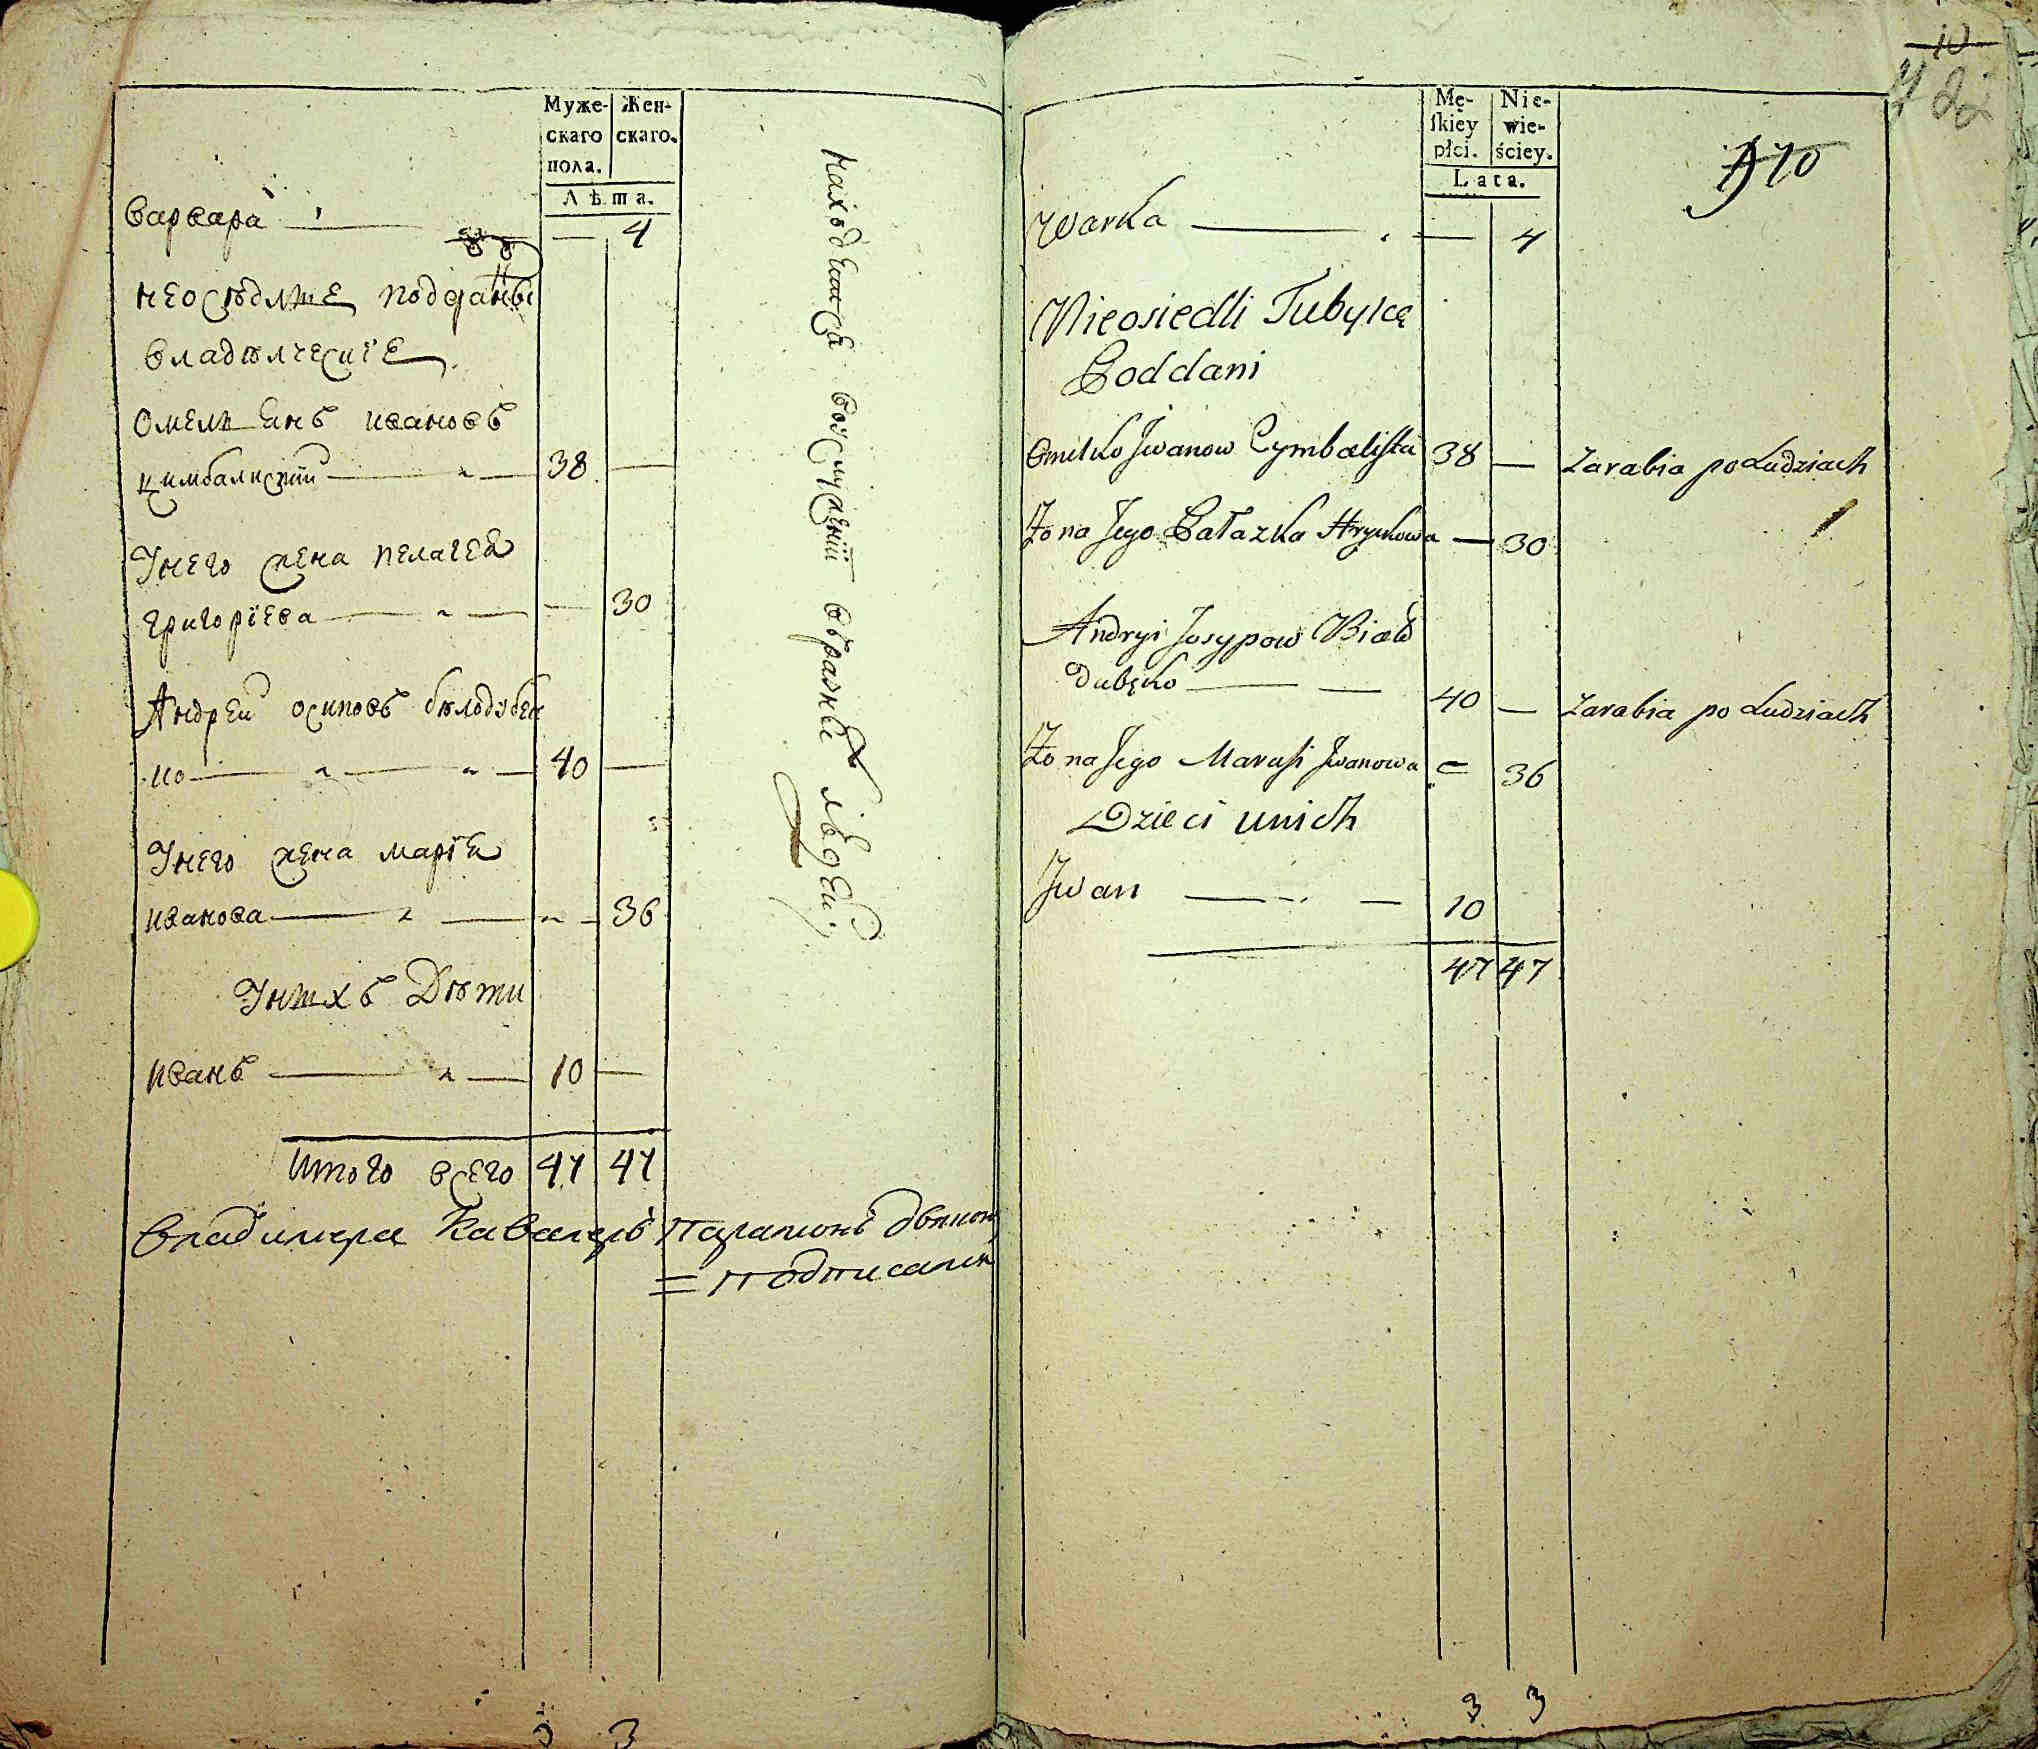 Муже-
скаго
пола.
Жен-
скаго.
Лѣта.
варвара — 4
неоседлые подданые
владѣлческие
Омельянъ ивановъ
цимбалистий 38 —
У него жена пелагея
григориева — 30
Андрей осиповъ бѣлодубен
ко 40 —
У него жена мария
иванова — 36
У нихъ Дѣти
иванъ 10 —
итого всего 47 47
владимера Кавалеръ
подписалъ
находятся
разныхъ людей
3 3
10
Mę-
ſkiéy
płci.
Nie-
wie-
ściey.
Lata.
Warka — 4
Nieosiedli Tubylcę
Poddani
Omelko Iwanow Cymbalista 38 — Zarabia po Ludziach
Zona Jego Pałazka Hryckowa — 30
Andryi Josypow Biało
dubęko 40 — Zarabia po Ludziach
Zona Jego Marusi Iwanowa = 36
Dzieci unich
Iwan 10
47 47
3 3